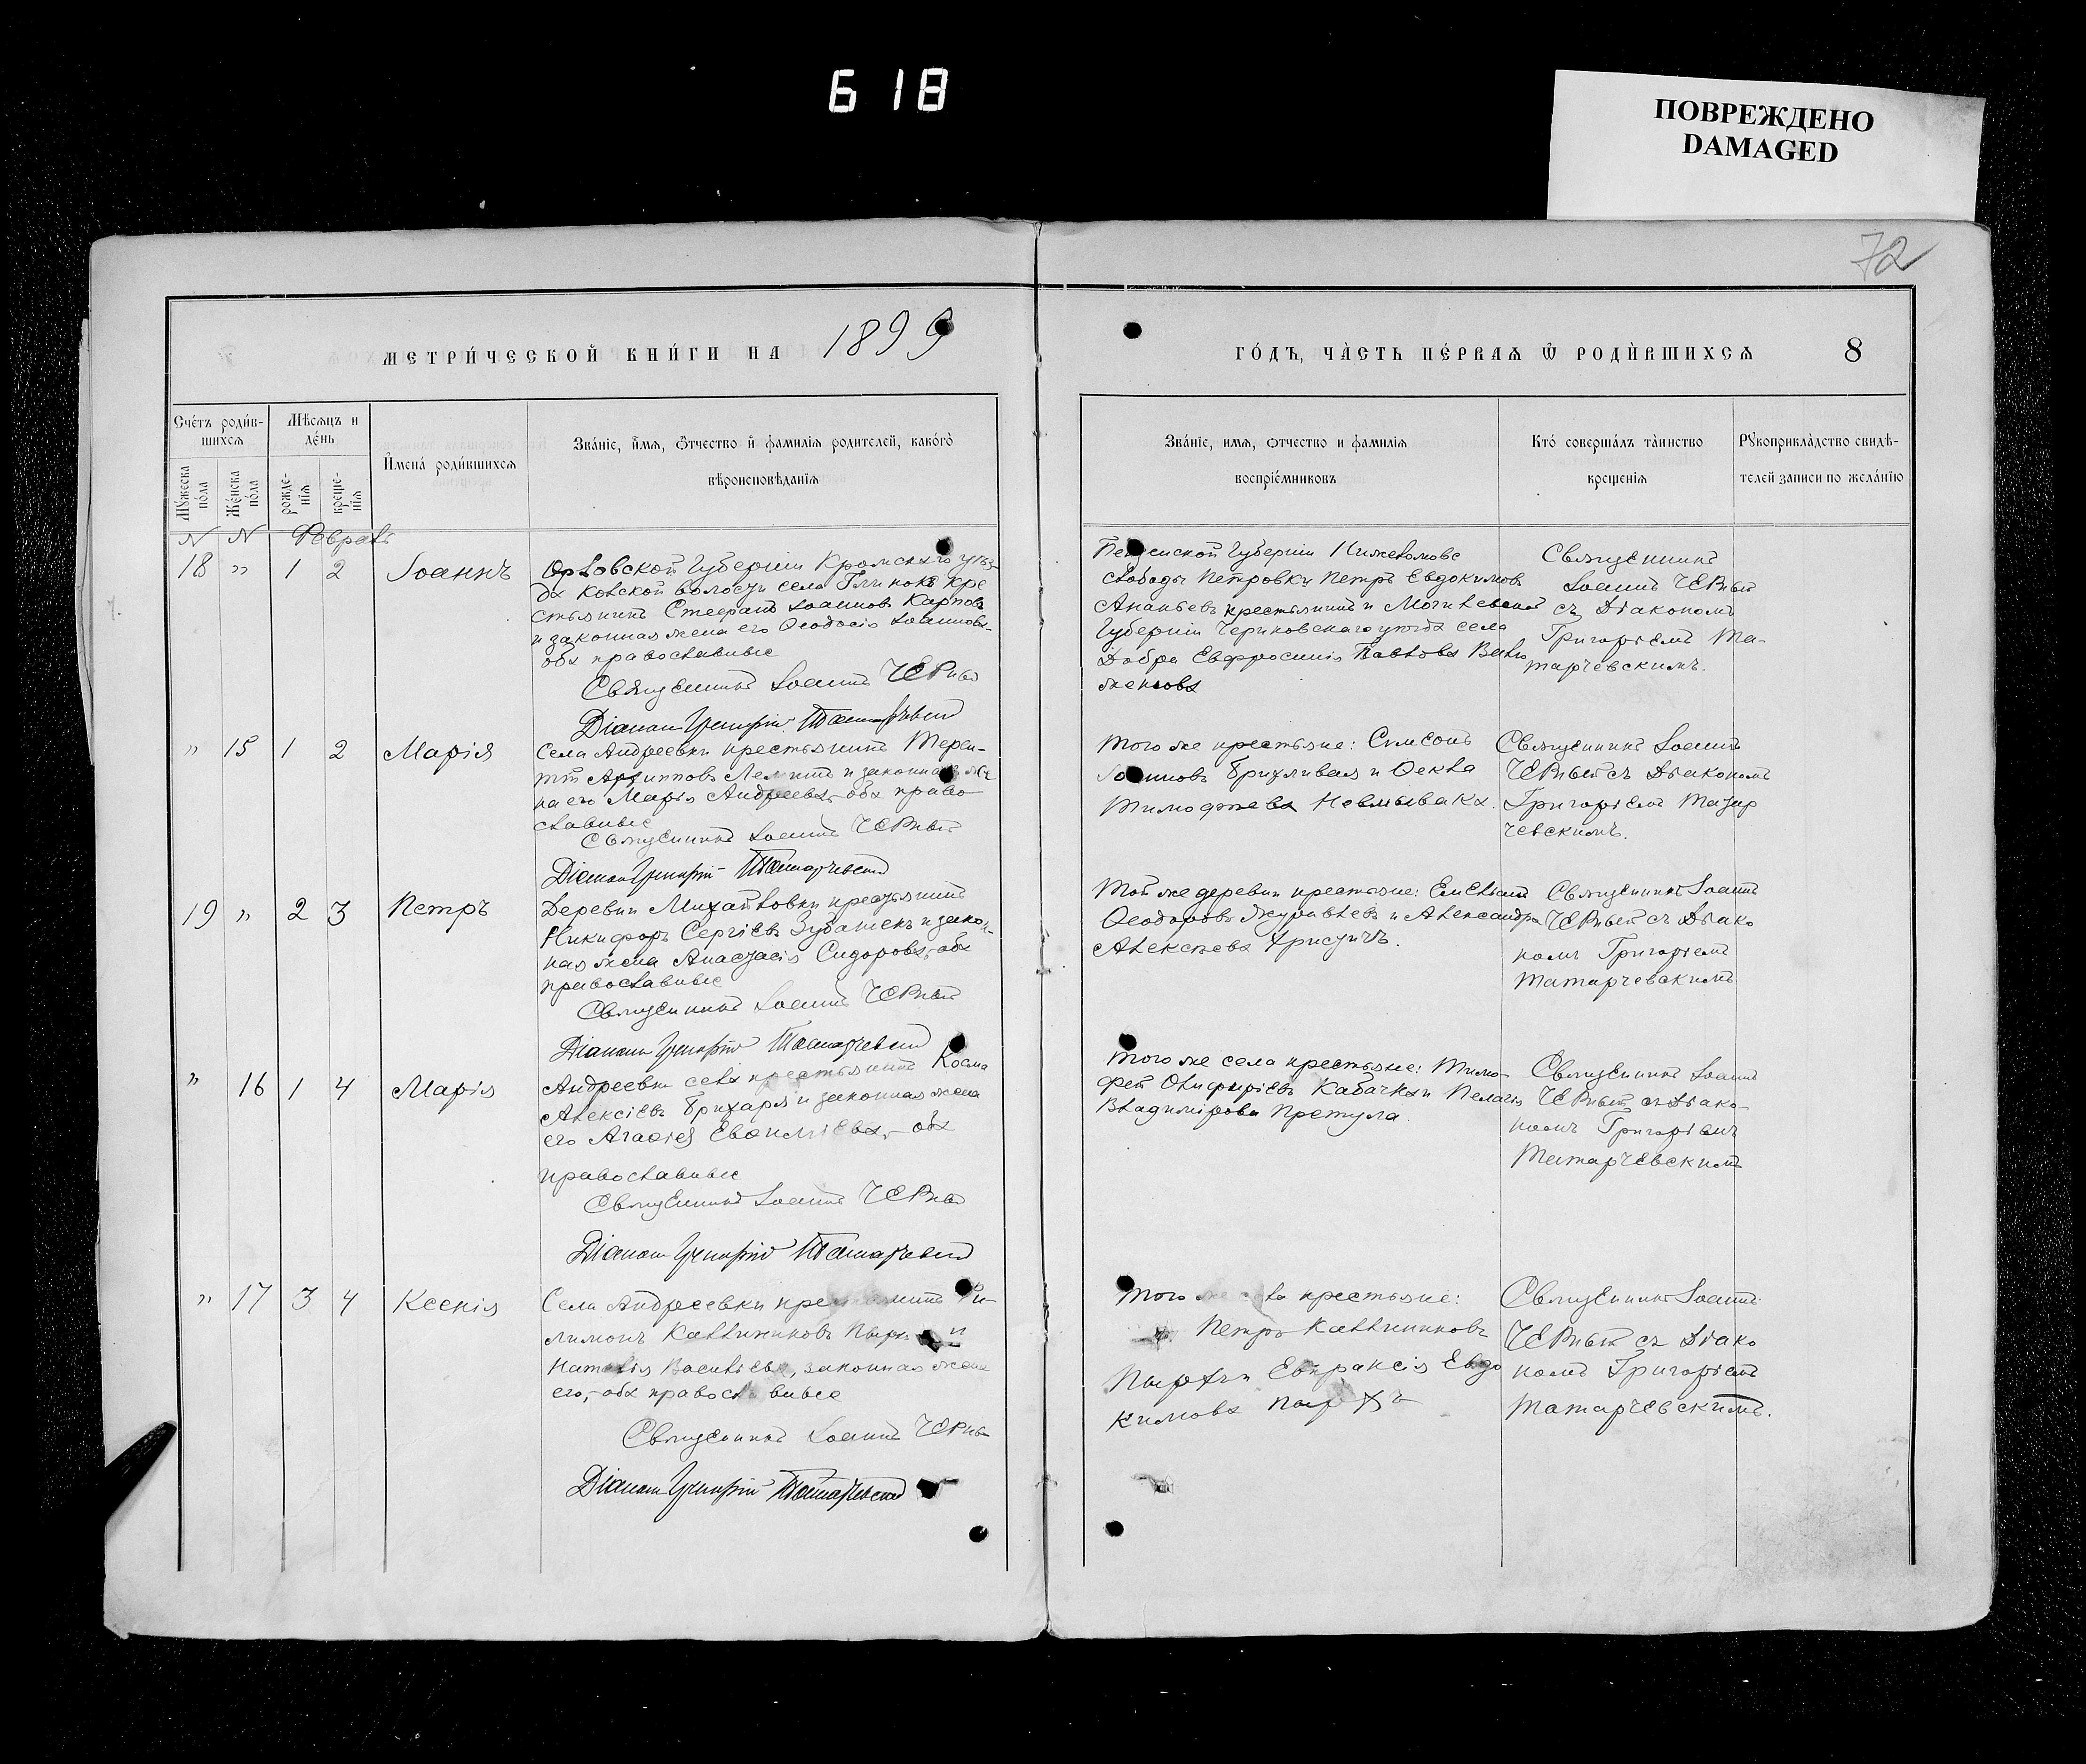 618
ПОВРЕЖДЕНО
DAMAGED
72
МЕТРИ́ЧЕСКОЙ КНИ́ГИ НА 1899
ГО́ДЪ, ЧА̀СТЬ ПЕ́РВАѦ Ѿ РОДЍВШИХСѦ 8
Сче́тъ роди́в-
шихсѧ
Мѣсѧцъ и
де́нь
И҆мена́ роди́вшихсѧ
Зва́нїе, и҆́мѧ, о҆́тчество и҆ фами́лїѧ родителей, како́гѡ
вѣроисповѣданїѧ
Мꙋ́жеска
по́ла
Же́нска
по́ла
рожде-
нїѧ
креще-
нїѧ
Зва́нїе, имѧ, ѻтчество и фамилїѧ
воспрїе́мниковъ
Кто́ соверша́лъ та̀инство
крещенїѧ
Рꙋкоприкла̀дство свидѣ-
телей записи по жела́нїю
N N Февраль
18 " 1 2 Іоаннъ
Орловской Губерніи Кромскаго уѣз
да села Глинокъ кре
стьянинъ Стефанъ Іоанновъ Карповъ
и законная жена его Ѳеодосія Іоаннова
оба православные
Священникъ Іоаннъ Черный
Діаконъ Григорій Татарчевскій
Губерніи
слободы Петровки Петръ Евдокимовъ
Ананьевъ крестьянинъ и Могилевской
Губерніи Чериковскаго уѣзда села
Евфросинія Павлова
Священникъ
Іоаннъ Черный
съ Діакономъ
Григоріемъ Та-
тарчевскимъ.
" 15 1 2 Марія
Села Андреевки крестьянинъ Терен-
тій и законная же
на его Марія Андреева, оба право
славные
Священникъ Іоаннъ Черный
Діаконъ Григорій Татарчевскій
Того же крестьяне: Симеонъ
Іоанновъ и Ѳекла
Тимофѣева
Священникъ Іоаннъ
Черный съ Діакономъ
Григоріемъ Татар
чевскимъ.
19 " 2 3 Петръ
Деревни Михайловки крестьянинъ
Никифоръ Сергіевъ и закон-
ная жена Анастасія Сидорова, оба
православные
Священникъ Іоаннъ Черный
Діаконъ Григорій Татарчевскій
Той же деревни крестьяне: Емельянъ
Ѳеодоровъ Журавлевъ и Александра
Алексѣева
Священникъ Іоаннъ
Черный съ Діако
номъ Григоріемъ
Татарчевскимъ
" 16 1 4 Марія
Андреевки села крестьянинъ Косма
Алексіевъ и законная жена
его оба
православные
Священникъ Іоаннъ Черный
Діаконъ Григорій Татарчевскій
Того же села крестьяне: Тимо-
фей и Пелагія
Владимірова Претула.
Священникъ Іоаннъ
Черный съ Діако-
номъ Григоріемъ
Татарчевскимъ
" 17 3 4 Ксенія
Села Андреевки крестьянинъ Фи-
лимонъ Каллиниковъ и
Наталія Василіева, законная жена
его, оба православные
Священникъ Іоаннъ Черный
Діаконъ Григорій Татарчевскій
Того же села крестьяне:
Петръ Каллиниковъ
Евпраксія Евдо
кимова
Священникъ Іоаннъ
Черный съ Діако
номъ Григоріемъ
Татарчевскимъ.